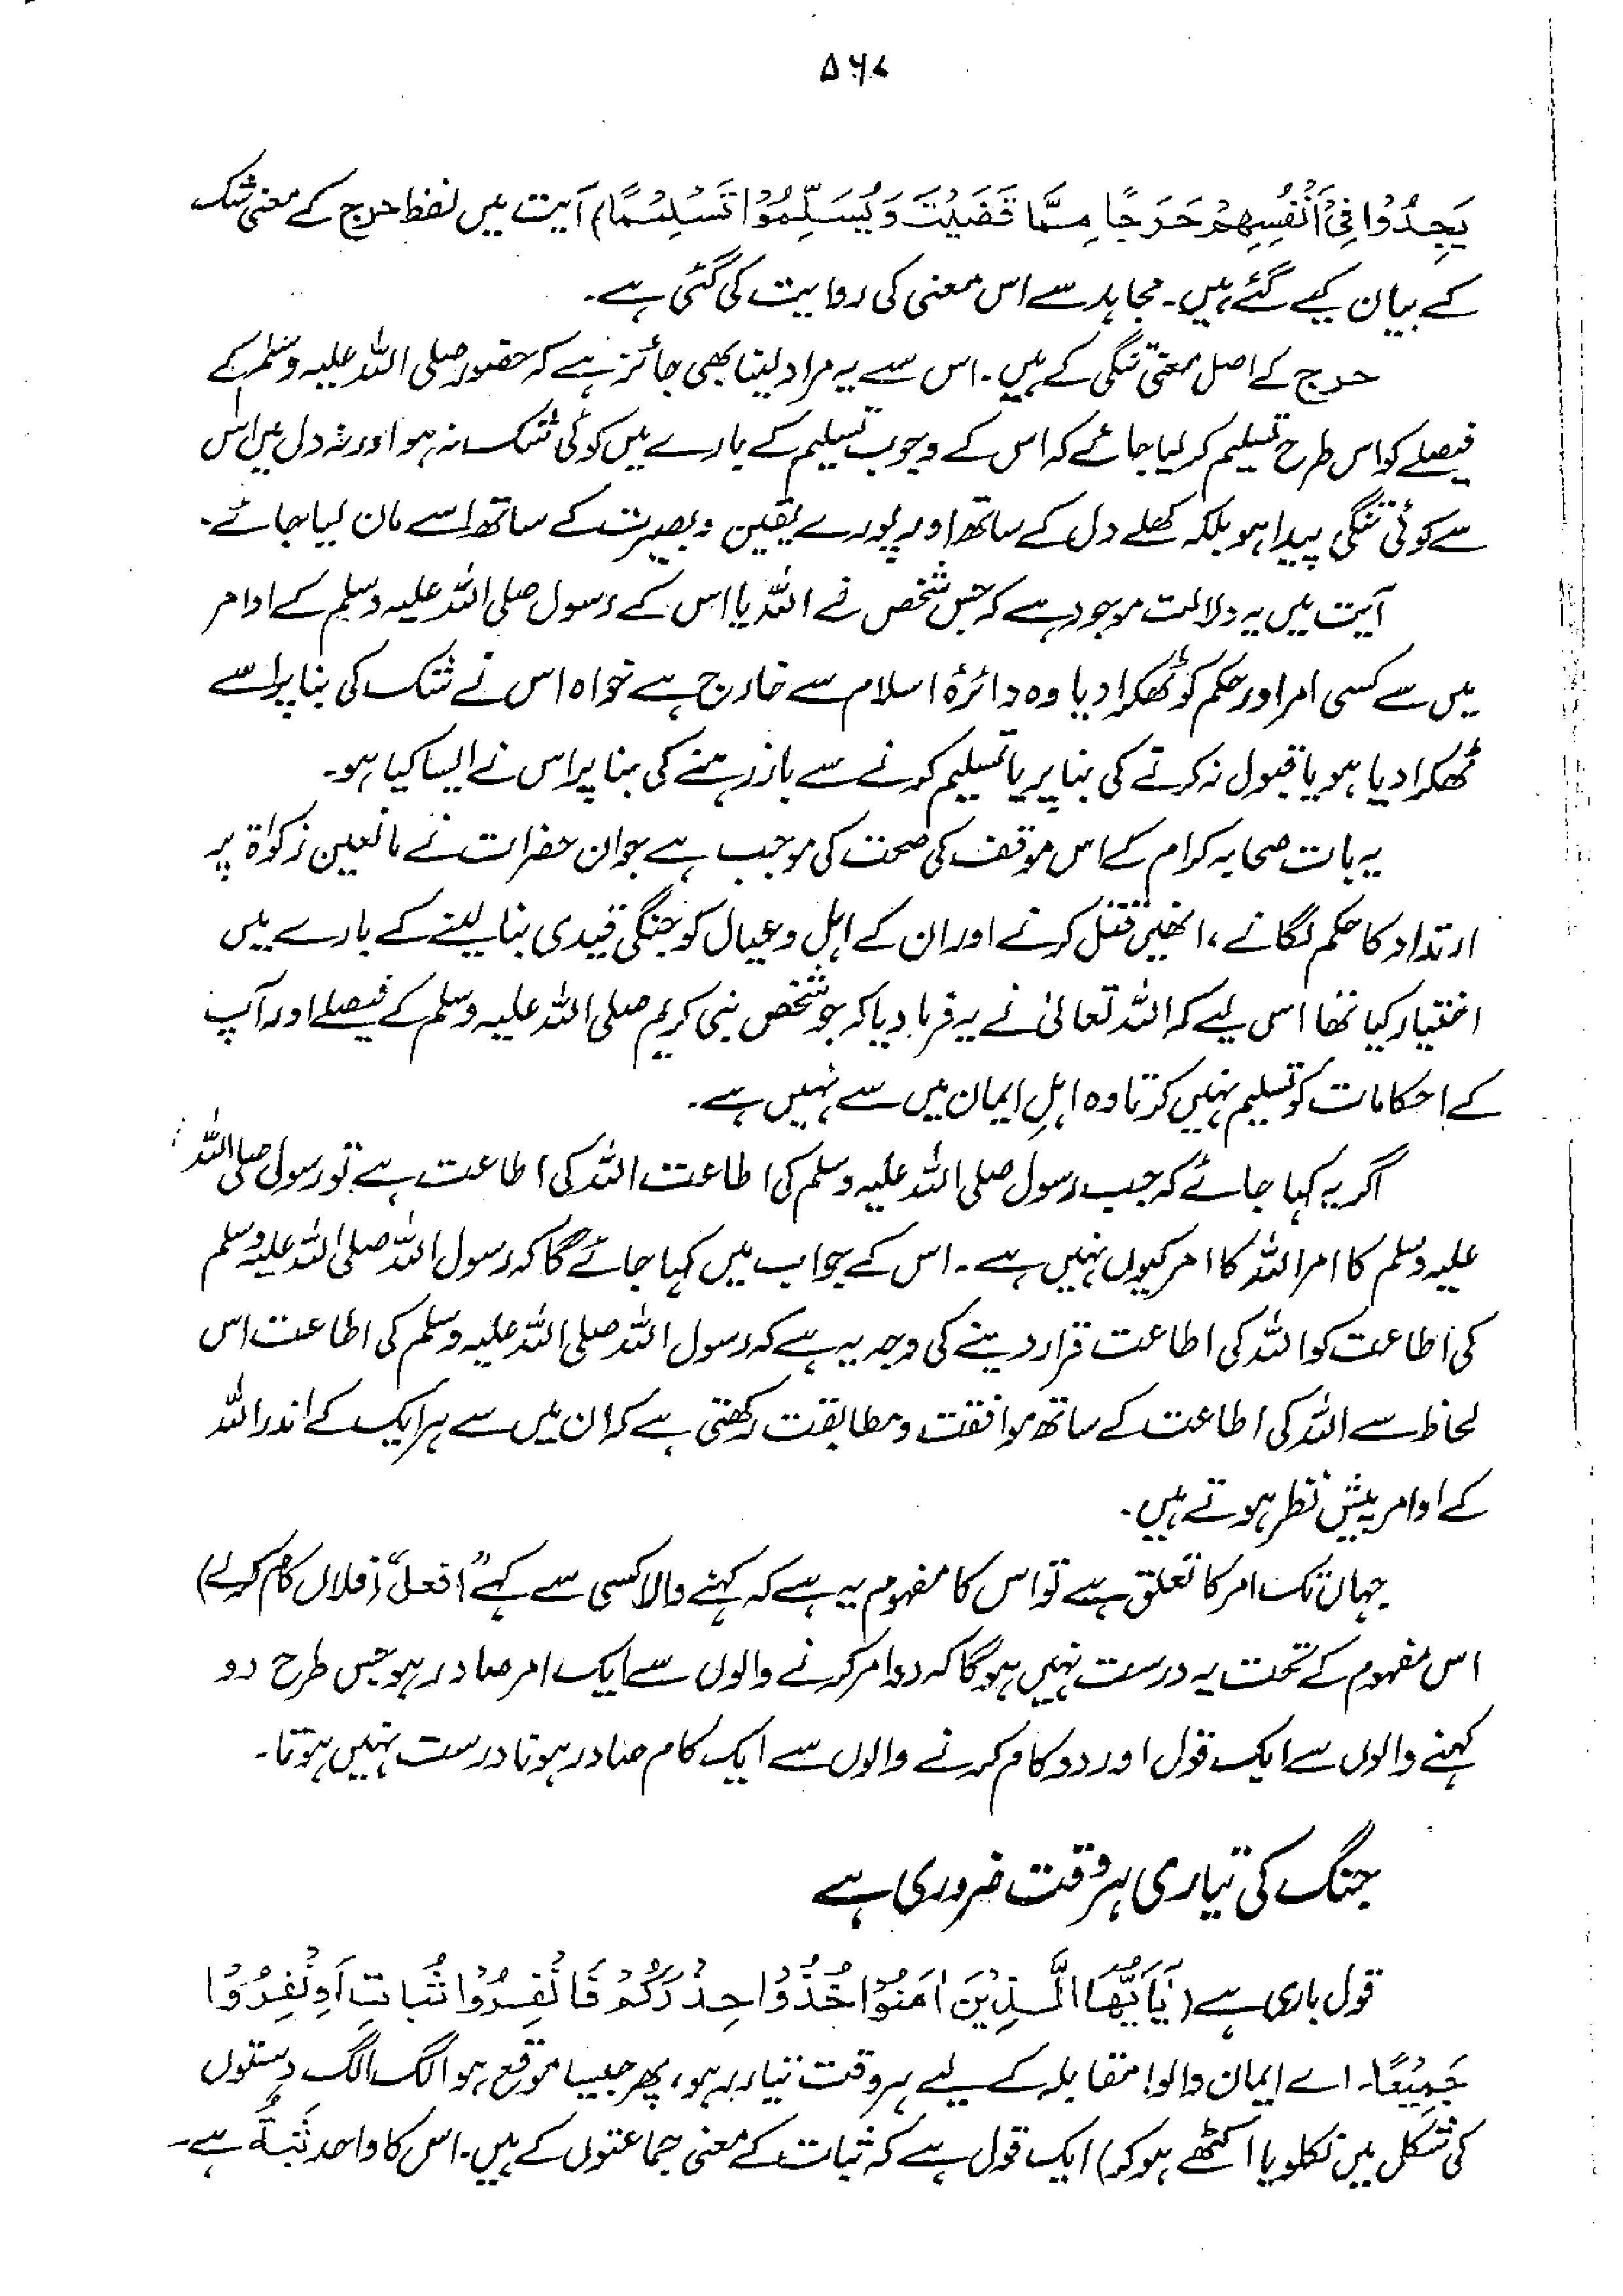 ۵۶۷
یَجِدُوْا فِیْٓ اَنْفُسِهِمْ حَرَجًا مِمَّا قَضَیْتَ وَیُسَلِّمُوْا تَسْلِیْمًا) آیت میں لفظ حرج کے معنی شک
کے بیان کیے گئے ہیں۔ مجاہد سے اس معنی کی روایت کی گئی ہے۔
حرج کے اصل معنی تنگی کے ہیں۔ اس سے یہ مراد لینا بھی جائز ہے کہ حضور صلی اللہ علیہ وسلم کے
فیصلے کو اس طرح تسلیم کر لیا جائے کہ اس کے وجوب تسلیم کے بارے میں کوئی شک نہ ہو اور نہ دل میں اس
سے کوئی تنگی پیدا ہو بلکہ کھلے دل کے ساتھ اور پورے یقین و بصیرت کے ساتھ اسے مان لیا جائے۔
آیت میں یہ دلالت موجود ہے کہ جس شخص نے اللہ یا اس کے رسول صلی اللہ علیہ وسلم کے اوامر
میں سے کسی امر اور حکم کو ٹھکرا دیا وہ دائرۂ اسلام سے خارج ہے خواہ اس نے شک کی بنا پر اسے
ٹھکرا دیا ہو یا قبول نہ کرنے کی بنا پر یا تسلیم کرنے سے باز رہنے کی بنا پر اس نے ایسا کیا ہو۔
یہ بات صحابہ کرام کے اس موقف کی صحت کی موجب ہے جو ان حضرات نے مانعین زکوٰۃ پر
ارتداد کا حکم لگانے، انھیں قتل کرنے اور ان کے اہل و عیال کو جنگی قیدی بنا لینے کے بارے میں
اختیار کیا تھا اس لیے کہ اللہ تعالیٰ نے یہ فرما دیا کہ جو شخص نبی کریم صلی اللہ علیہ وسلم کے فیصلے اور آپ
کے احکامات کو تسلیم نہیں کرتا وہ اہلِ ایمان میں سے نہیں ہے۔
اگر یہ کہا جائے کہ جب رسول صلی اللہ علیہ وسلم کی اطاعت اللہ کی اطاعت ہے تو رسول صلی اللہ
علیہ وسلم کا امر اللہ کا امر کیوں نہیں ہے۔ اس کے جواب میں کہا جائے گا کہ رسول اللہ صلی اللہ علیہ وسلم
کی اطاعت کو اللہ کی اطاعت قرار دینے کی وجہ یہ ہے کہ رسول اللہ صلی اللہ علیہ وسلم کی اطاعت اس
لحاظ سے اللہ کی اطاعت کے ساتھ موافقت و مطابقت رکھتی ہے کہ ان میں سے ہر ایک کے اندر اللہ
کے اوامر پیش نظر ہوتے ہیں۔
جہاں تک امر کا تعلق ہے تو اس کا مفہوم یہ ہے کہ کہنے والا کسی سے کہے "افعل" (فلاں کام کرلے)
اس مفہوم کے تحت یہ درست نہیں ہوگا کہ دو امر کرنے والوں سے ایک امر صادر ہو جس طرح دو
کہنے والوں سے ایک قول اور دو کام کرنے والوں سے ایک کام صادر ہونا درست نہیں ہوتا۔
جنگ کی تیاری ہر وقت ضروری ہے
قول باری ہے (یَٰٓاَیُّهَا الَّذِیْنَ اٰمَنُوْا خُذُوْا حِذْرَكُمْ فَانْفِرُوْا ثُبَاتٍ اَوِ انْفِرُوْا
جَمِیْعًا۔ اے ایمان والو! مقابلہ کے لیے ہر وقت تیار رہو، پھر جیسا موقع ہو الگ الگ دستوں
کی شکل میں نکلو یا اکٹھے ہو کر) ایک قول ہے کہ ثبات کے معنی جماعتوں کے ہیں۔ اس کا واحد ثُبَةٌ ہے۔